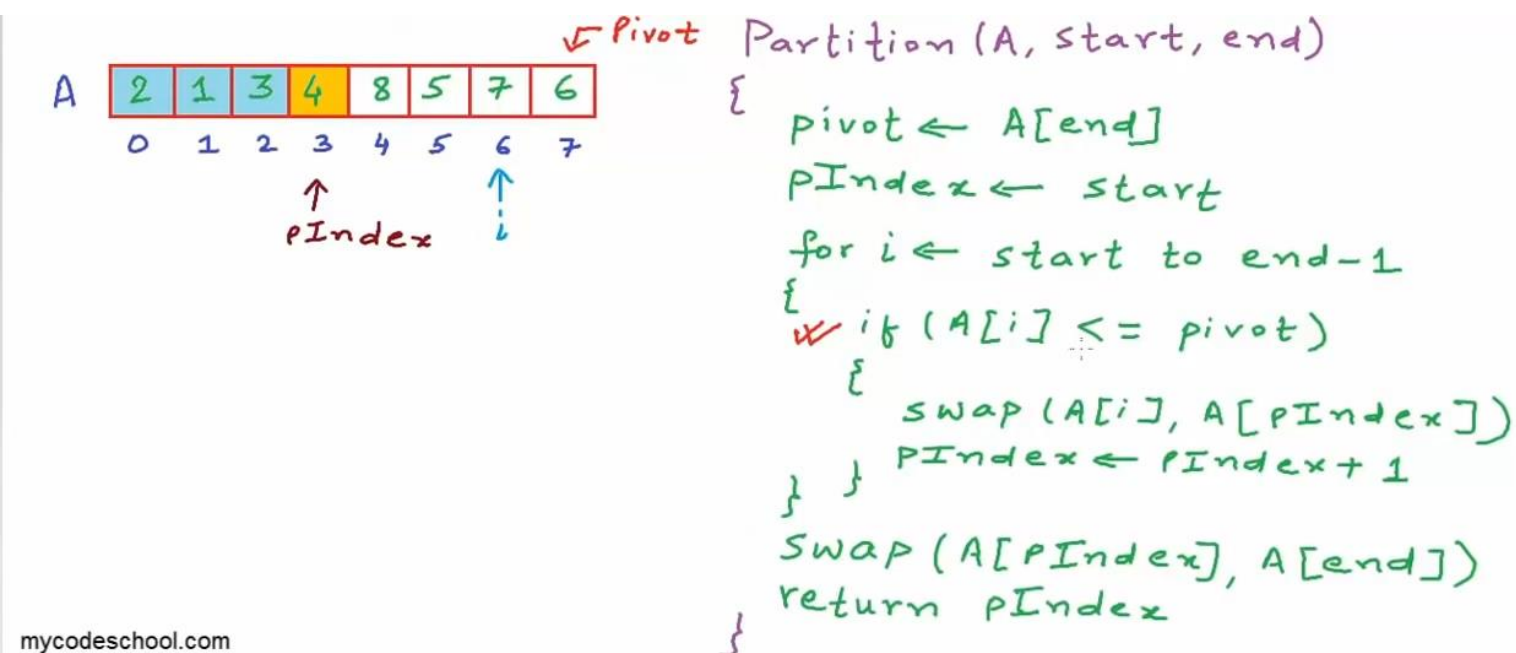 Pivot
A 2 1 3 4 8 5 7 6
0 1 2 3 4 5 6 7
pIndex i
Partition (A, start, end)
{
pivot ← A[end]
pIndex ← start
for i ← start to end-1
{
if (A[i] <= pivot)
{
swap (A[i], A[pIndex])
pIndex ← pIndex + 1
} }
swap (A[pIndex], A[end])
return pIndex
}
mycodeschool.com